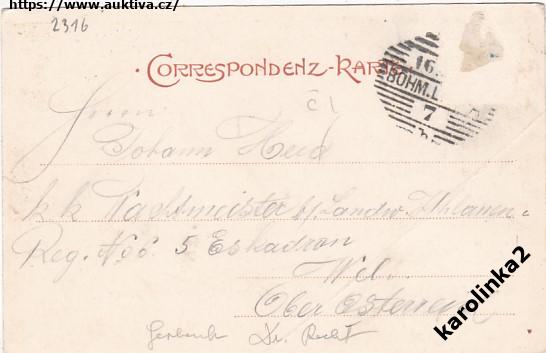 https://www.auktiva.cz/
2316
· CORRESPONDENZ-KARTE
16.
BÖHM.L
7
Herrn
Č1
Johann Heid
k k Wachtmeister b/ Landw. Uhlanen-
Reg. No 6. 5 Eskadron
Wels.
Ober Österreich
karolinka2